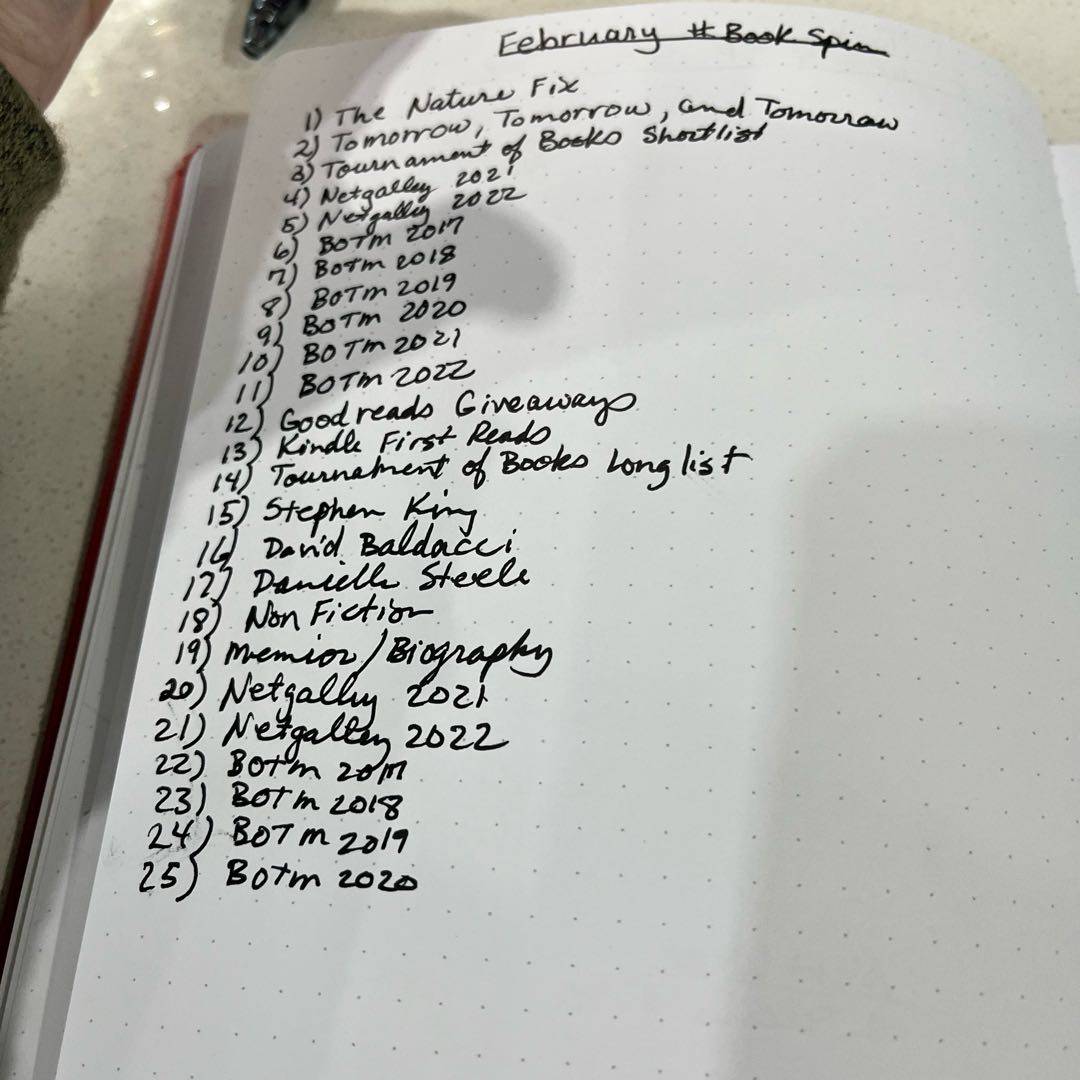 February #BookSpin
1) The Nature Fix
2) Tomorrow, Tomorrow, and Tomorrow
3) Tournament of Books Shortlist
4) Netgalley 2021
5) Netgalley 2022
6) BOTM 2017
7) BOTM 2018
8) BOTM 2019
9) BOTM 2020
10) BOTM 2021
11) BOTM 2022
12) Goodreads Giveaways
13) Kindle First Reads
14) Tournament of Books Longlist
15) Stephen King
16) David Baldacci
17) Danielle Steele
18) Non Fiction
19) Memior/Biography
20) Netgalley 2021
21) Netgalley 2022
22) BOTM 2017
23) BOTM 2018
24) BOTM 2019
25) BOTM 2020